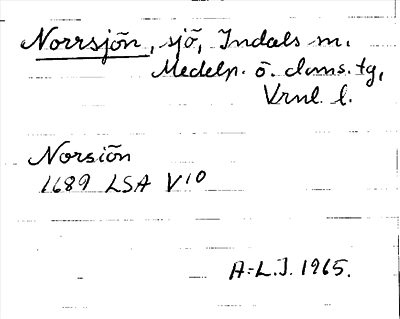 Norrsjön, sjö, Indals sn.
Medelp. ö. doms.tg,
Vrnl. l.
Norsiön
1689 LSA V10
A:L.J. 1965.